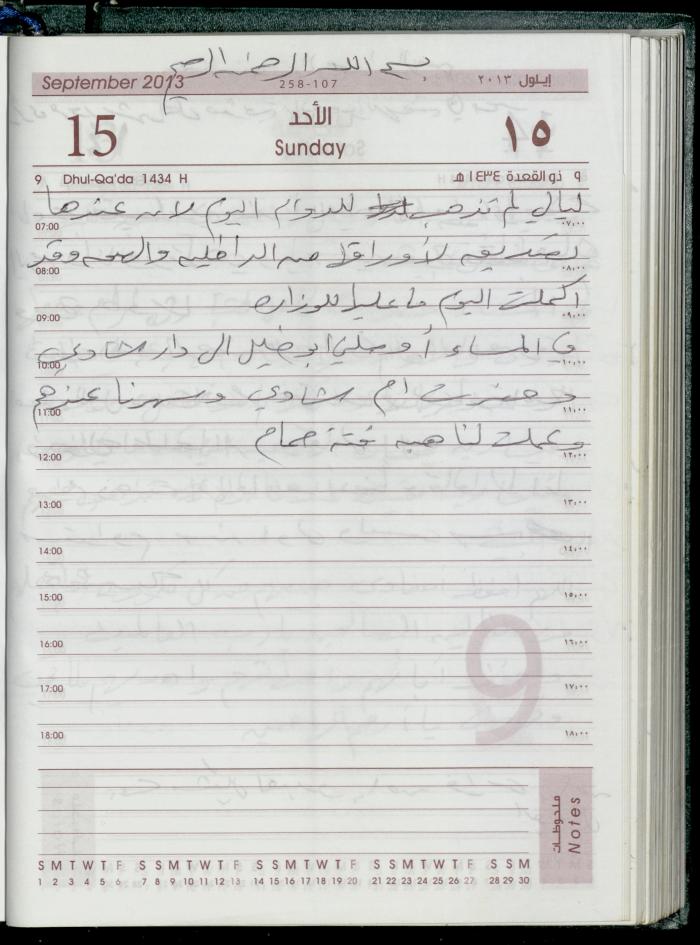 بسم الله الرحمن الرحيم
September 2013 258-107 إيلول ٢٠١٣
15 الأحد ١٥
Sunday
9 Dhul-Qa'da 1434 H ٩ ذو القعدة ١٤٣٤ هـ
ليال لم تذهب للدوام اليوم لانه عندها
07:00 ٠٧:٠٠
تصديق لأوراقها من الداخليه والصحه وقد
08:00 ٠٨:٠٠
اكملت اليوم ما عليها للوزاره
09:00 ٠٩:٠٠
في المساء أوصلني ابو خليل الى دار شادي
10:00 ١٠:٠٠
وحضرت ام شادي وسهرنا عندهم
11:00 ١١:٠٠
وعملت لنا هبه فتة حمام
12:00 ١٢:٠٠
13:00 ١٣:٠٠
14:00 ١٤:٠٠
15:00 ١٥:٠٠
16:00 ١٦:٠٠
17:00 ١٧:٠٠
18:00 ١٨:٠٠
9
ملحوظات
Notes
S M T W T F S S M T W T F S S M T W T F S S M T W T F S S M
1 2 3 4 5 6 7 8 9 10 11 12 13 14 15 16 17 18 19 20 21 22 23 24 25 26 27 28 29 30